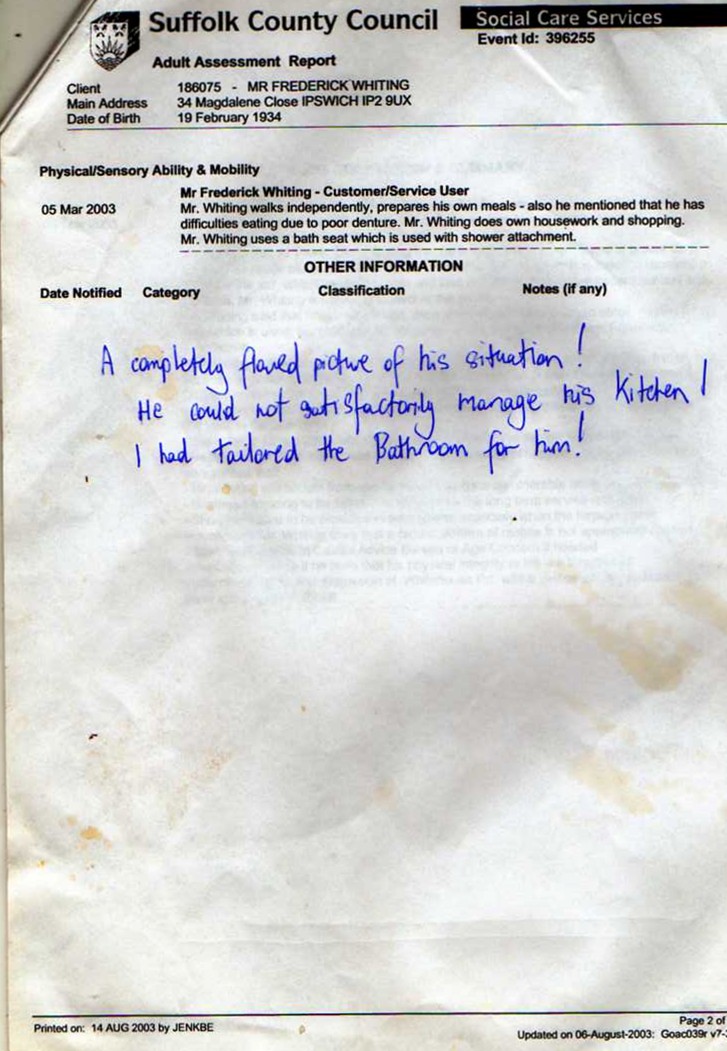 Suffolk County Council
Social Care Services
Event Id: 396255
Adult Assessment Report
Client 186075 - MR FREDERICK WHITING
Main Address 34 Magdalene Close IPSWICH IP2 9UX
Date of Birth 19 February 1934
Physical/Sensory Ability & Mobility
Mr Frederick Whiting - Customer/Service User
05 Mar 2003 Mr. Whiting walks independently, prepares his own meals - also he mentioned that he has
difficulties eating due to poor denture. Mr. Whiting does own housework and shopping.
Mr. Whiting uses a bath seat which is used with shower attachment.
OTHER INFORMATION
Date Notified Category Classification Notes (if any)
A completely flawed picture of his situation!
He could not satisfactorily manage his Kitchen!
I had tailored the Bathroom for him!
Printed on: 14 AUG 2003 by JENKBE
Page 2 of
Updated on 06-August-2003: Goac039r v7-